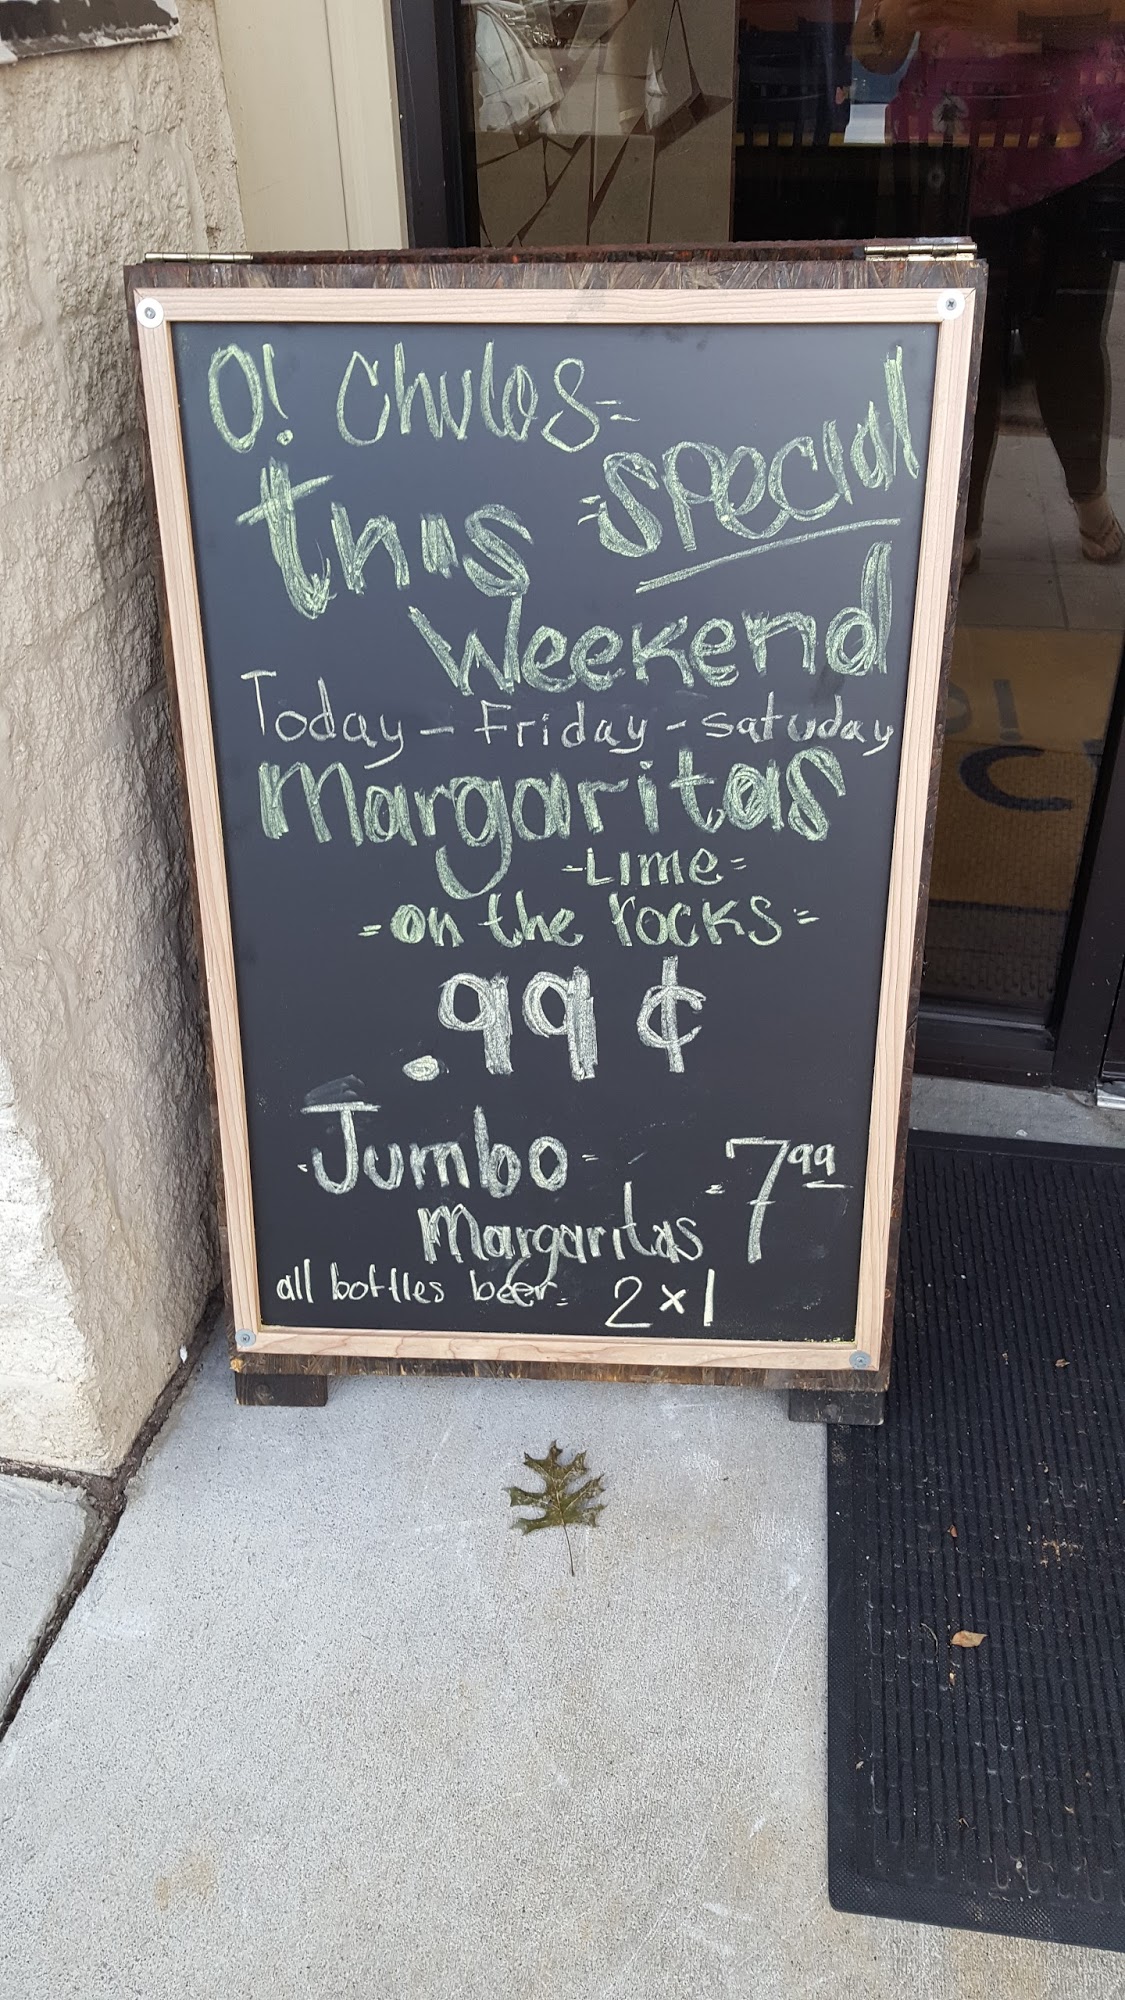 O! Chulos
Special
this
weekend
Today - Friday - satuday
Margaritas
- Lime =
= on the rocks =
.99 ¢
Jumbo - = 7 99
Margaritas
all bottles beer = 2 x 1